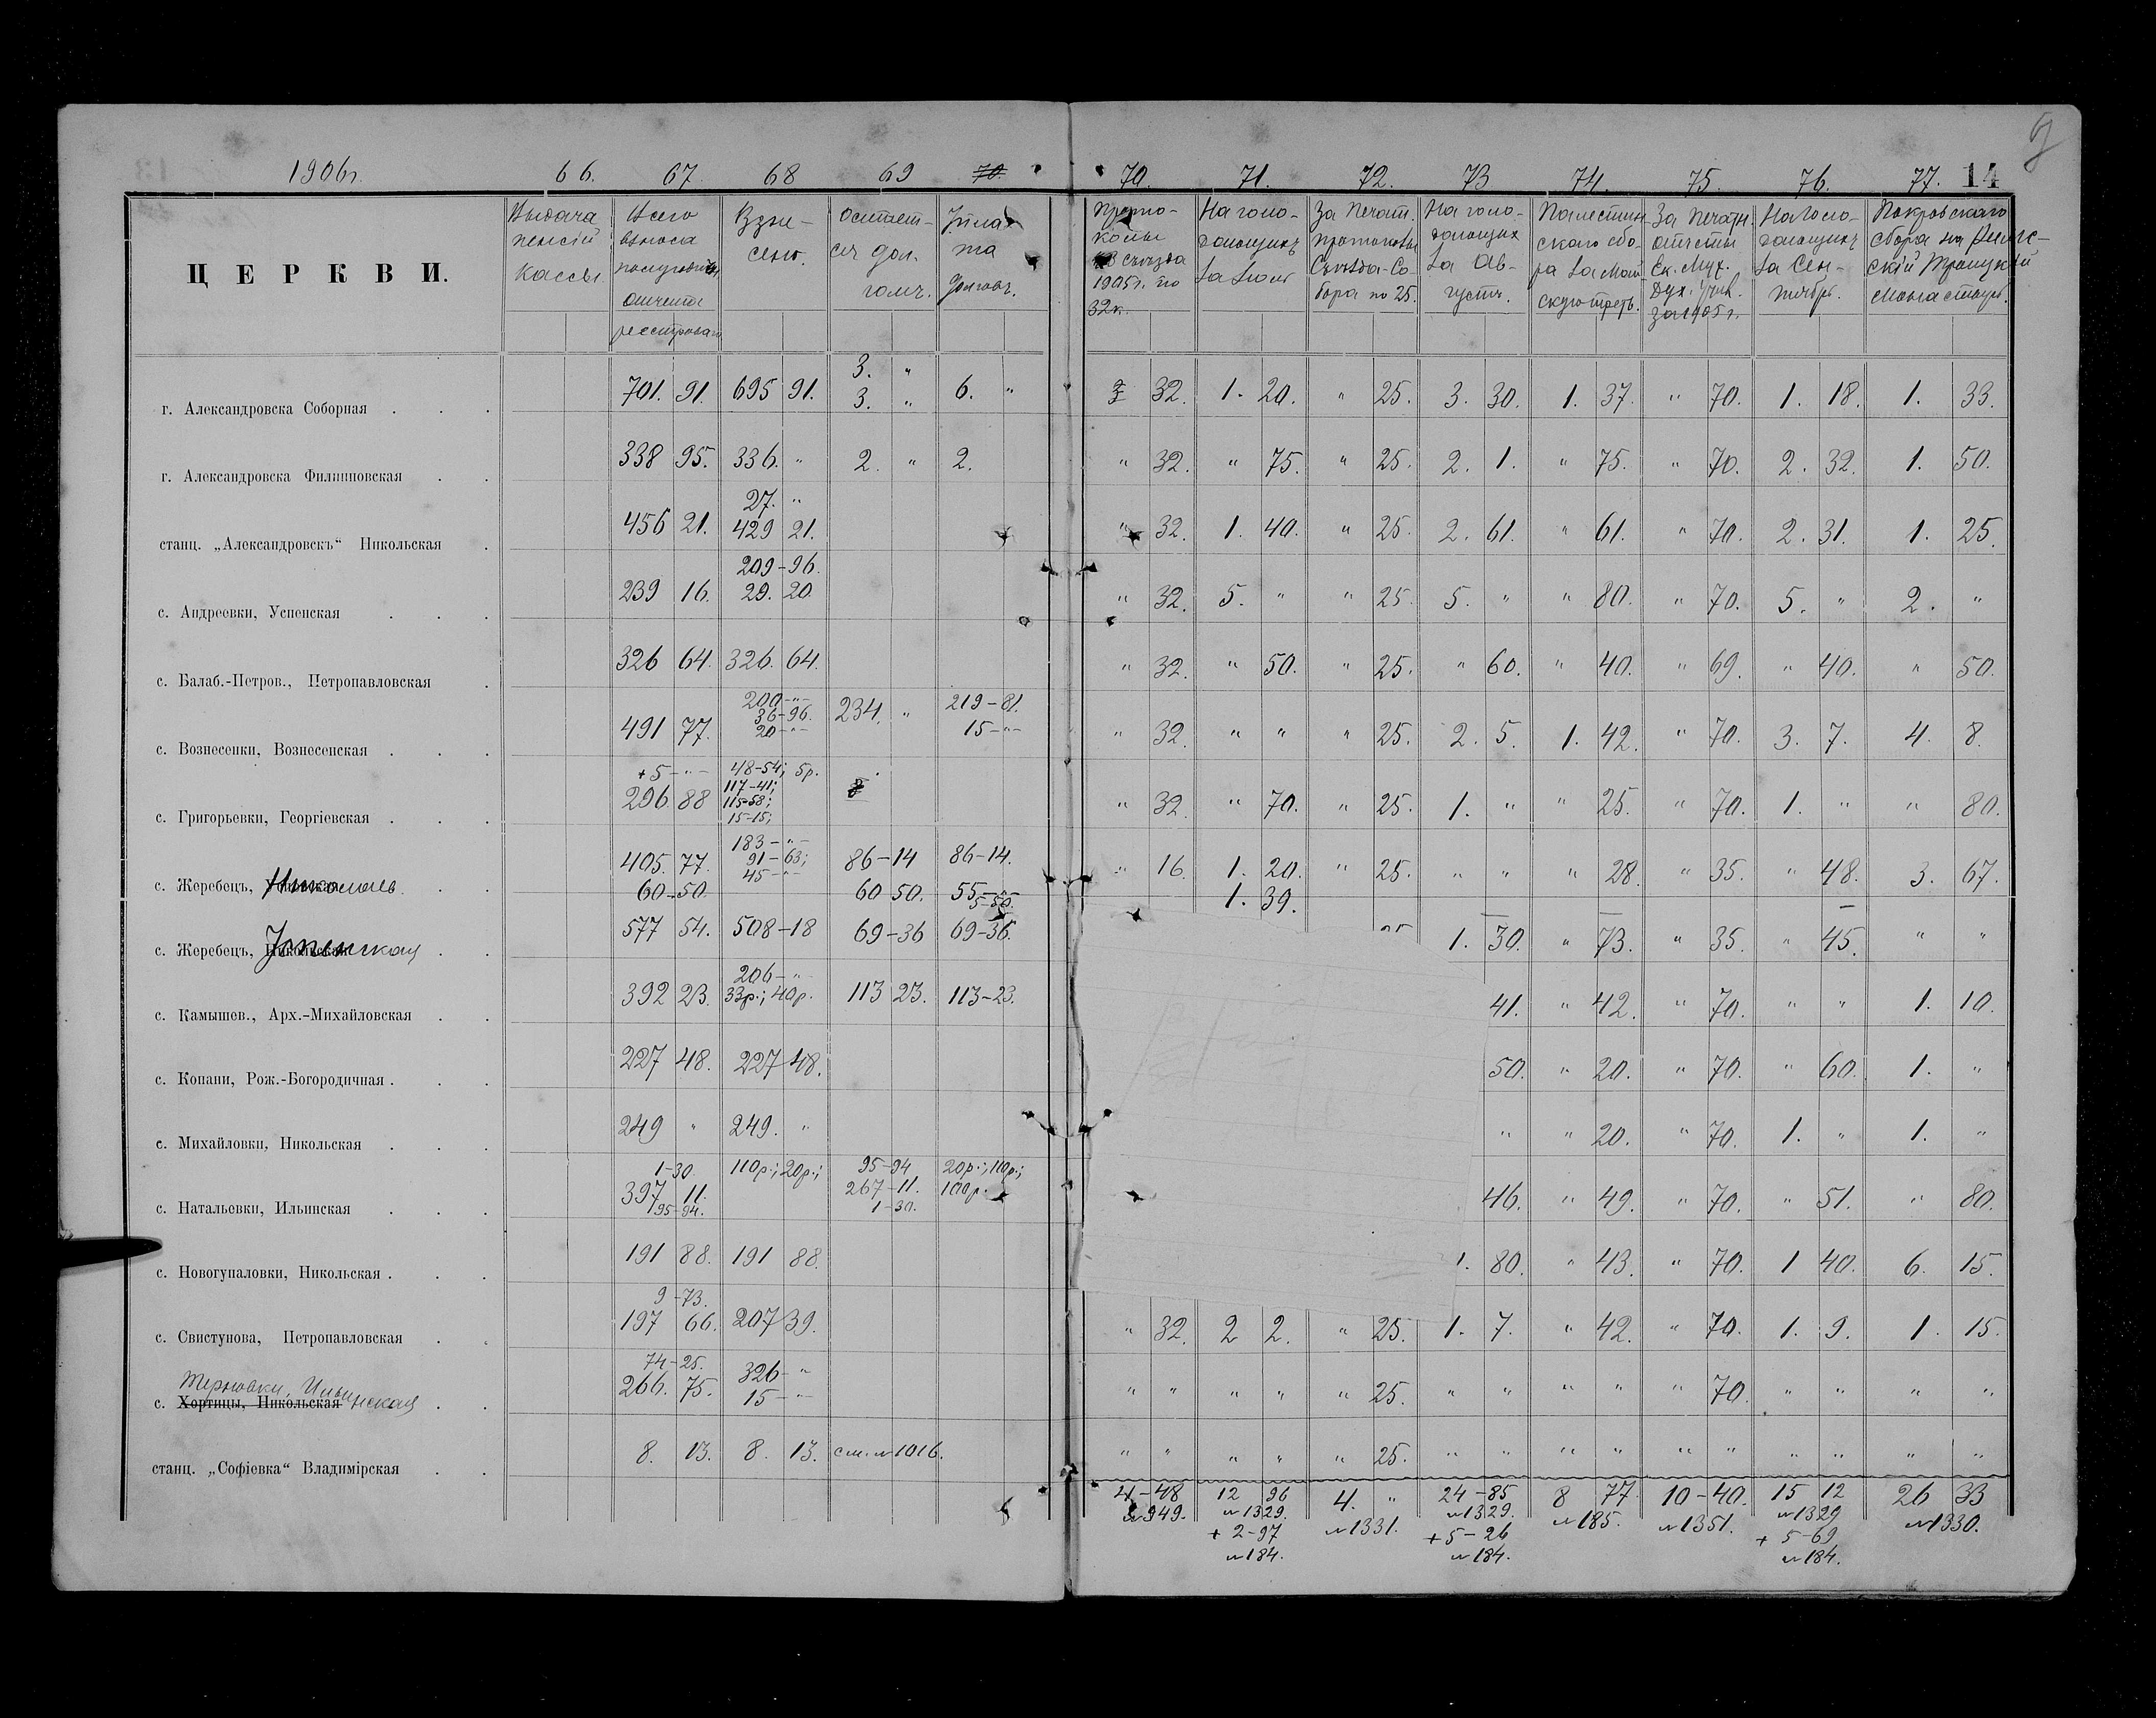 1906г. 66. 67 68 69 70. 70. 71. 72. 73 74. 75. 76. 77. 14
ЦЕРКВИ.
Выдача пенсій кассы.
Всего взноса
Взне-сено.
Остает-ся дол-гомъ.
Уплата долговъ.
Прото-колы съѣзда 1905г. по 32к.
На голо-дающихъ за Іюль
За печат. протоколы Съѣзда-Со-бора по 25.
На голо-дающихъ за Ав-густъ.
Палестин-скаго сбо-ра за Май-скую треть.
За печатн. отчеты Ек. Муж. Дух. Учил. за 1905 г.
На голо-дающихъ за Сен-тябрь.
Покровскаго сбора на монастырь.
3. "
г. Александровска Соборная . . . 701. 91. 695 91. 3. " 6. " 32. 1. 20. " 25. 3. 30. 1. 37. " 70. 1. 18. 1. 33.
г. Александровска Филипповская . . 338 95. 336. " 2. " 2. " 32. " 75. " 25. 2. 1. " 75. " 70. 2. 32. 1. 50.
27. "
станц. „Александровскъ“ Никольская . 456 21. 429 21. " 32. 1. 40. " 25. 2. 61. " 61. " 70. 2. 31. 1. 25.
209-96.
с. Андреевки, Успенская . . . 239 16. 29. 20. " 32. 5. " " 25. 5. " " 80. " 70. 5. " 2. "
с. Балаб.-Петров., Петропавловская . 326 64. 326. 64. " 32. " 50. " 25. " 60. " 40. " 69. " 40. " 50.
200-"-
36-96. 234. " 219-81.
с. Вознесенки, Вознесенская . . . 491 77. 20-"- 15-"- " 32. " " " 25. 2. 5. 1. 42. " 70. 3. 7. 4. 8.
+5-"- 48-54; 5р.
117-41;
с. Григорьевки, Георгіевская . . . 296 88 115-58; " 32. " 70. " 25. 1. " " 25. " 70. 1. " " 80.
15-15;
183-"-
405. 77. 91-63; 86-14 86-14.
с. Жеребецъ, Николаев. . . 45-"- " 16. 1. 20. " 25. " " " 28. " 35. " 48. 3. 67.
60-50. 60 50. 55-"- 5-50. 1. 39.
с. Жеребецъ, Успенская . . 577 54. 508-18 69-36 69-36. 1. 30. " 73. " 35. " 45. " "
206-"-
с. Камышев., Арх.-Михайловская . . 392 23. 33р.; 40р. 113 23. 113-23. 41. " 42. " 70. " " 1. 10.
с. Копани, Рож.-Богородичная . . . 227 48. 227 48. 50. " 20. " 70. " 60. 1. "
с. Михайловки, Никольская . . . 249 " 249. " " " 20. " 70. 1. " 1. "
1-30. 110р.; 20р.; 95-94 20р.; 110р.;
с. Натальевки, Ильинская . . . 397 11. 267-11. 100р. 46. " 49. " 70. " 51. " 80.
95-94. 1-30.
с. Новогупаловки, Никольская . . . 191 88. 191 88. 1. 80. " 43. " 70. 1 40. 6. 15.
9-73.
с. Свистунова, Петропавловская . . 197 66. 207 39. " 32. 2 2. " 25. 1. 7. " 42. " 70. 1. 9. 1. 15.
74-25. 326-"
Терновки, Ильинская
с. Хортицы, Никольская . . 266. 75. 15-"- " " " " " 25. " " " " " 70. " " " "
станц. „Софіевка“ Владимірская . . 8. 13. 8. 13. см. №1016. " " " " " 25. " " " " " " " " " "
4-48 12 96 4. " 24-85 8 77 10-40. 15 12 26 33
№949. №1329. №1331. №1329. №185. №1351. №1329 №1330.
+ 2-97 + 5-26 + 5-69
№184. №184. №184.